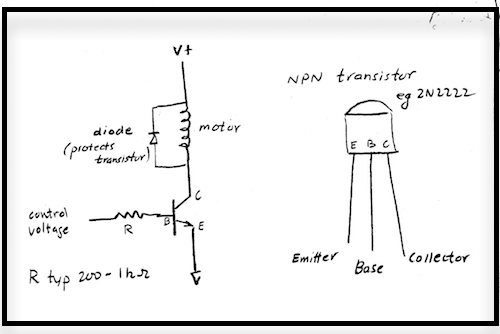 V+
diode
(protects
transistor)
motor
C
B
E
control
voltage
R
R typ 200 - 1kΩ
NPN transistor
eg 2N2222
E B C
Emitter
Base
Collector